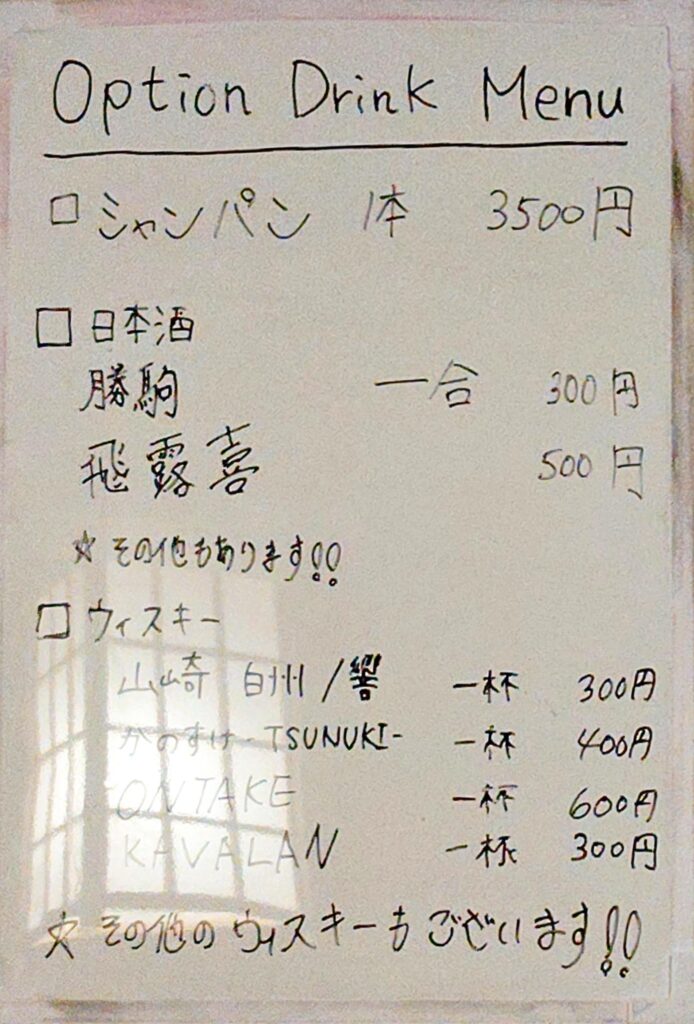 Option Drink Menu
□ シャンパン 1本 3500円
□ 日本酒
勝駒 一合 300円
飛露喜 500円
☆ その他もあります!!
□ ウィスキー
山崎 白州 / 響 一杯 300円
かのすけ -TSUNUKI- 一杯 400円
ONTAKE 一杯 600円
KAVALAN 一杯 300円
☆ その他のウィスキーもございます!!